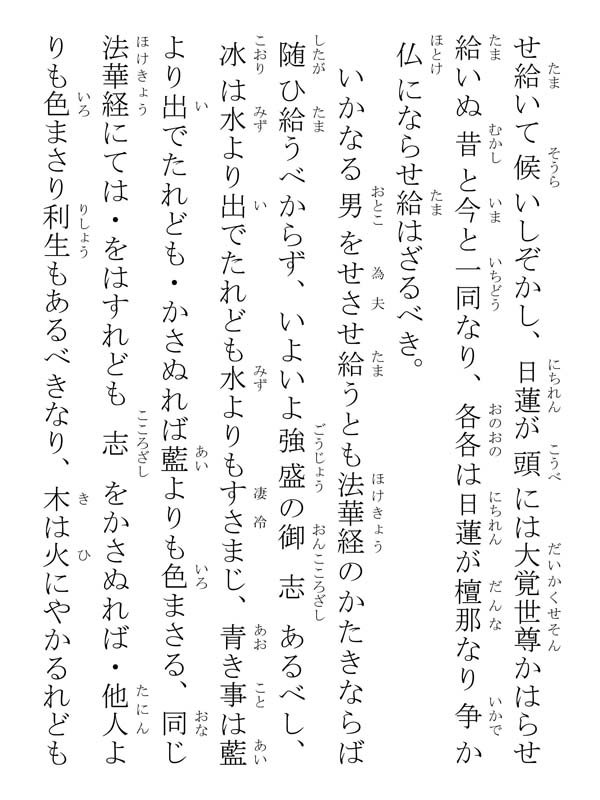 せ給いて候いしぞかし、日蓮が頭には大覚世尊かはらせ
給いぬ昔と今と一同なり、各各は日蓮が檀那なり争か
仏にならせ給はざるべき。
いかなる男をせさせ給うとも法華経のかたきならば
随ひ給うべからず、いよいよ強盛の御志あるべし、
冰は水より出でたれども水よりもすさまじ、青き事は藍
より出でたれども・かさぬれば藍よりも色まさる、同じ
法華経にては・をはすれども志をかさぬれば・他人よ
りも色まさり利生もあるべきなり、木は火にやかるれども